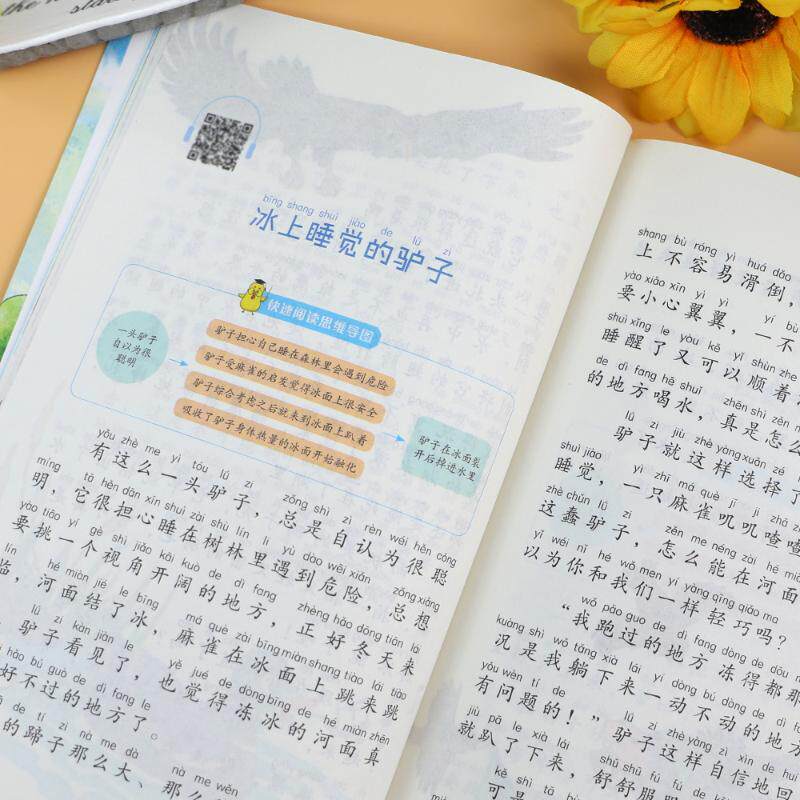 bīng shang shuì jiào de lǘ zi
冰上睡觉的驴子
快速阅读思维导图
一头驴子
自以为很
聪明
驴子担心自己睡在森林里会遇到危险
驴子受麻雀的启发觉得冰面上很安全
驴子综合考虑之后就来到冰面上趴着
吸收了驴子身体热量的冰面开始融化
驴子在冰面裂
开后掉进水里
yǒu zhè me yì tóu lǘ zi zǒng shì zì rèn wéi hěn cōng
有这么一头驴子，总是自认为很聪
míng tā hěn dān xīn shuì zài shù lín li yù dào wēi xiǎn zǒng xiǎng
明，它很担心睡在树林里遇到危险，总想
yào tiāo yí gè shì jiǎo kāi kuò de dì fang zhèng hǎo dōng tiān lái
要挑一个视角开阔的地方，正好冬天来
lín hé miàn jié le bīng má què zài bīng miàn shang tiào lái tiào
临，河面结了冰，麻雀在冰面上跳来跳
lǘ zi kàn jiàn le yě jué de dòng bīng de hé miàn zhēn
驴子看见了，也觉得冻冰的河面真
hǎo bú guò de dì fang le
好不过的地方了。
de tí zi nà me dà nà me wěn
的蹄子那么大、那么
shang bù róng yì huá dǎo
上不容易滑倒，
yào xiǎo xīn yì yì
要小心翼翼，一不
shuì xǐng le yòu kě yǐ shùn zhe
睡醒了又可以顺着
de dì fang hē shuǐ zhēn shì zěn
的地方喝水，真是怎么
lǘ zi jiù zhè yàng xuǎn zé
驴子就这样选择了
shuì jiào yì zhī má què jī ji zhā
睡觉，一只麻雀叽叽喳喳
zhè chǔn lǘ zi zěn me néng zài hé miàn
这蠢驴子，怎么能在河面
yǐ wéi nǐ hé wǒ men yí yàng qīng qiǎo ma
以为你和我们一样轻巧吗？
wǒ pǎo guo de dì fang dòng de dōu
“我跑过的地方冻得都那
kuàng shì wǒ tǎng xià lái yí dòng bú dòng de dì
况是我躺下来一动不动的地方
yǒu wèn tí de lǘ zi zhè yàng zì xìn de huí
有问题的！”驴子这样自信地回
jiù pā le xià lái shū shū fú fú de
就趴了下来，舒舒服服
kě shì
可是